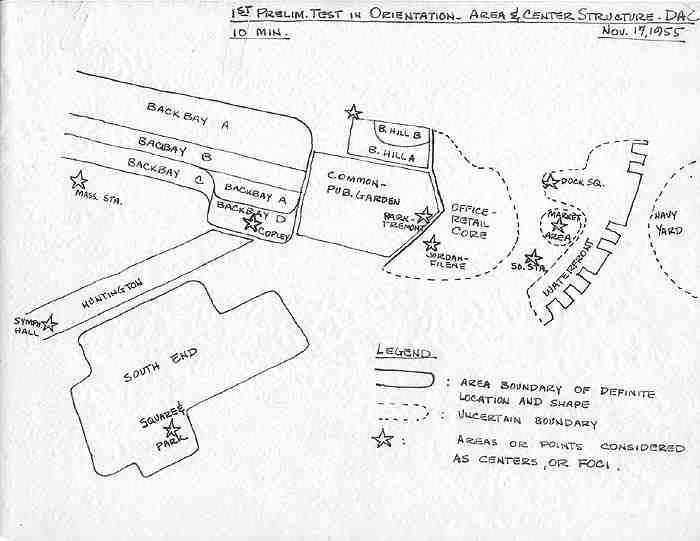 1ST PRELIM. TEST IN ORIENTATION - AREA & CENTER STRUCTURE - DAC
10 MIN.
NOV. 17, 1955
BACK BAY A
BACKBAY B
BACKBAY C
BACKBAY A
BACKBAY D
COPLEY
MASS. STA.
B. HILL B
B. HILL A
COMMON-
PUB. GARDEN
PARK-
TREMONT
OFFICE-
RETAIL
CORE
JORDAN-
FILENE
DOCK SQ.
MARKET
AREA
SO. STA.
WATERFRONT
NAVY
YARD
HUNTINGTON
SYMPH.
HALL
SOUTH END
SQUARE &
PARK
LEGEND
: AREA BOUNDARY OF DEFINITE
LOCATION AND SHAPE
: UNCERTAIN BOUNDARY
: AREAS OR POINTS CONSIDERED
AS CENTERS, OR FOCI.